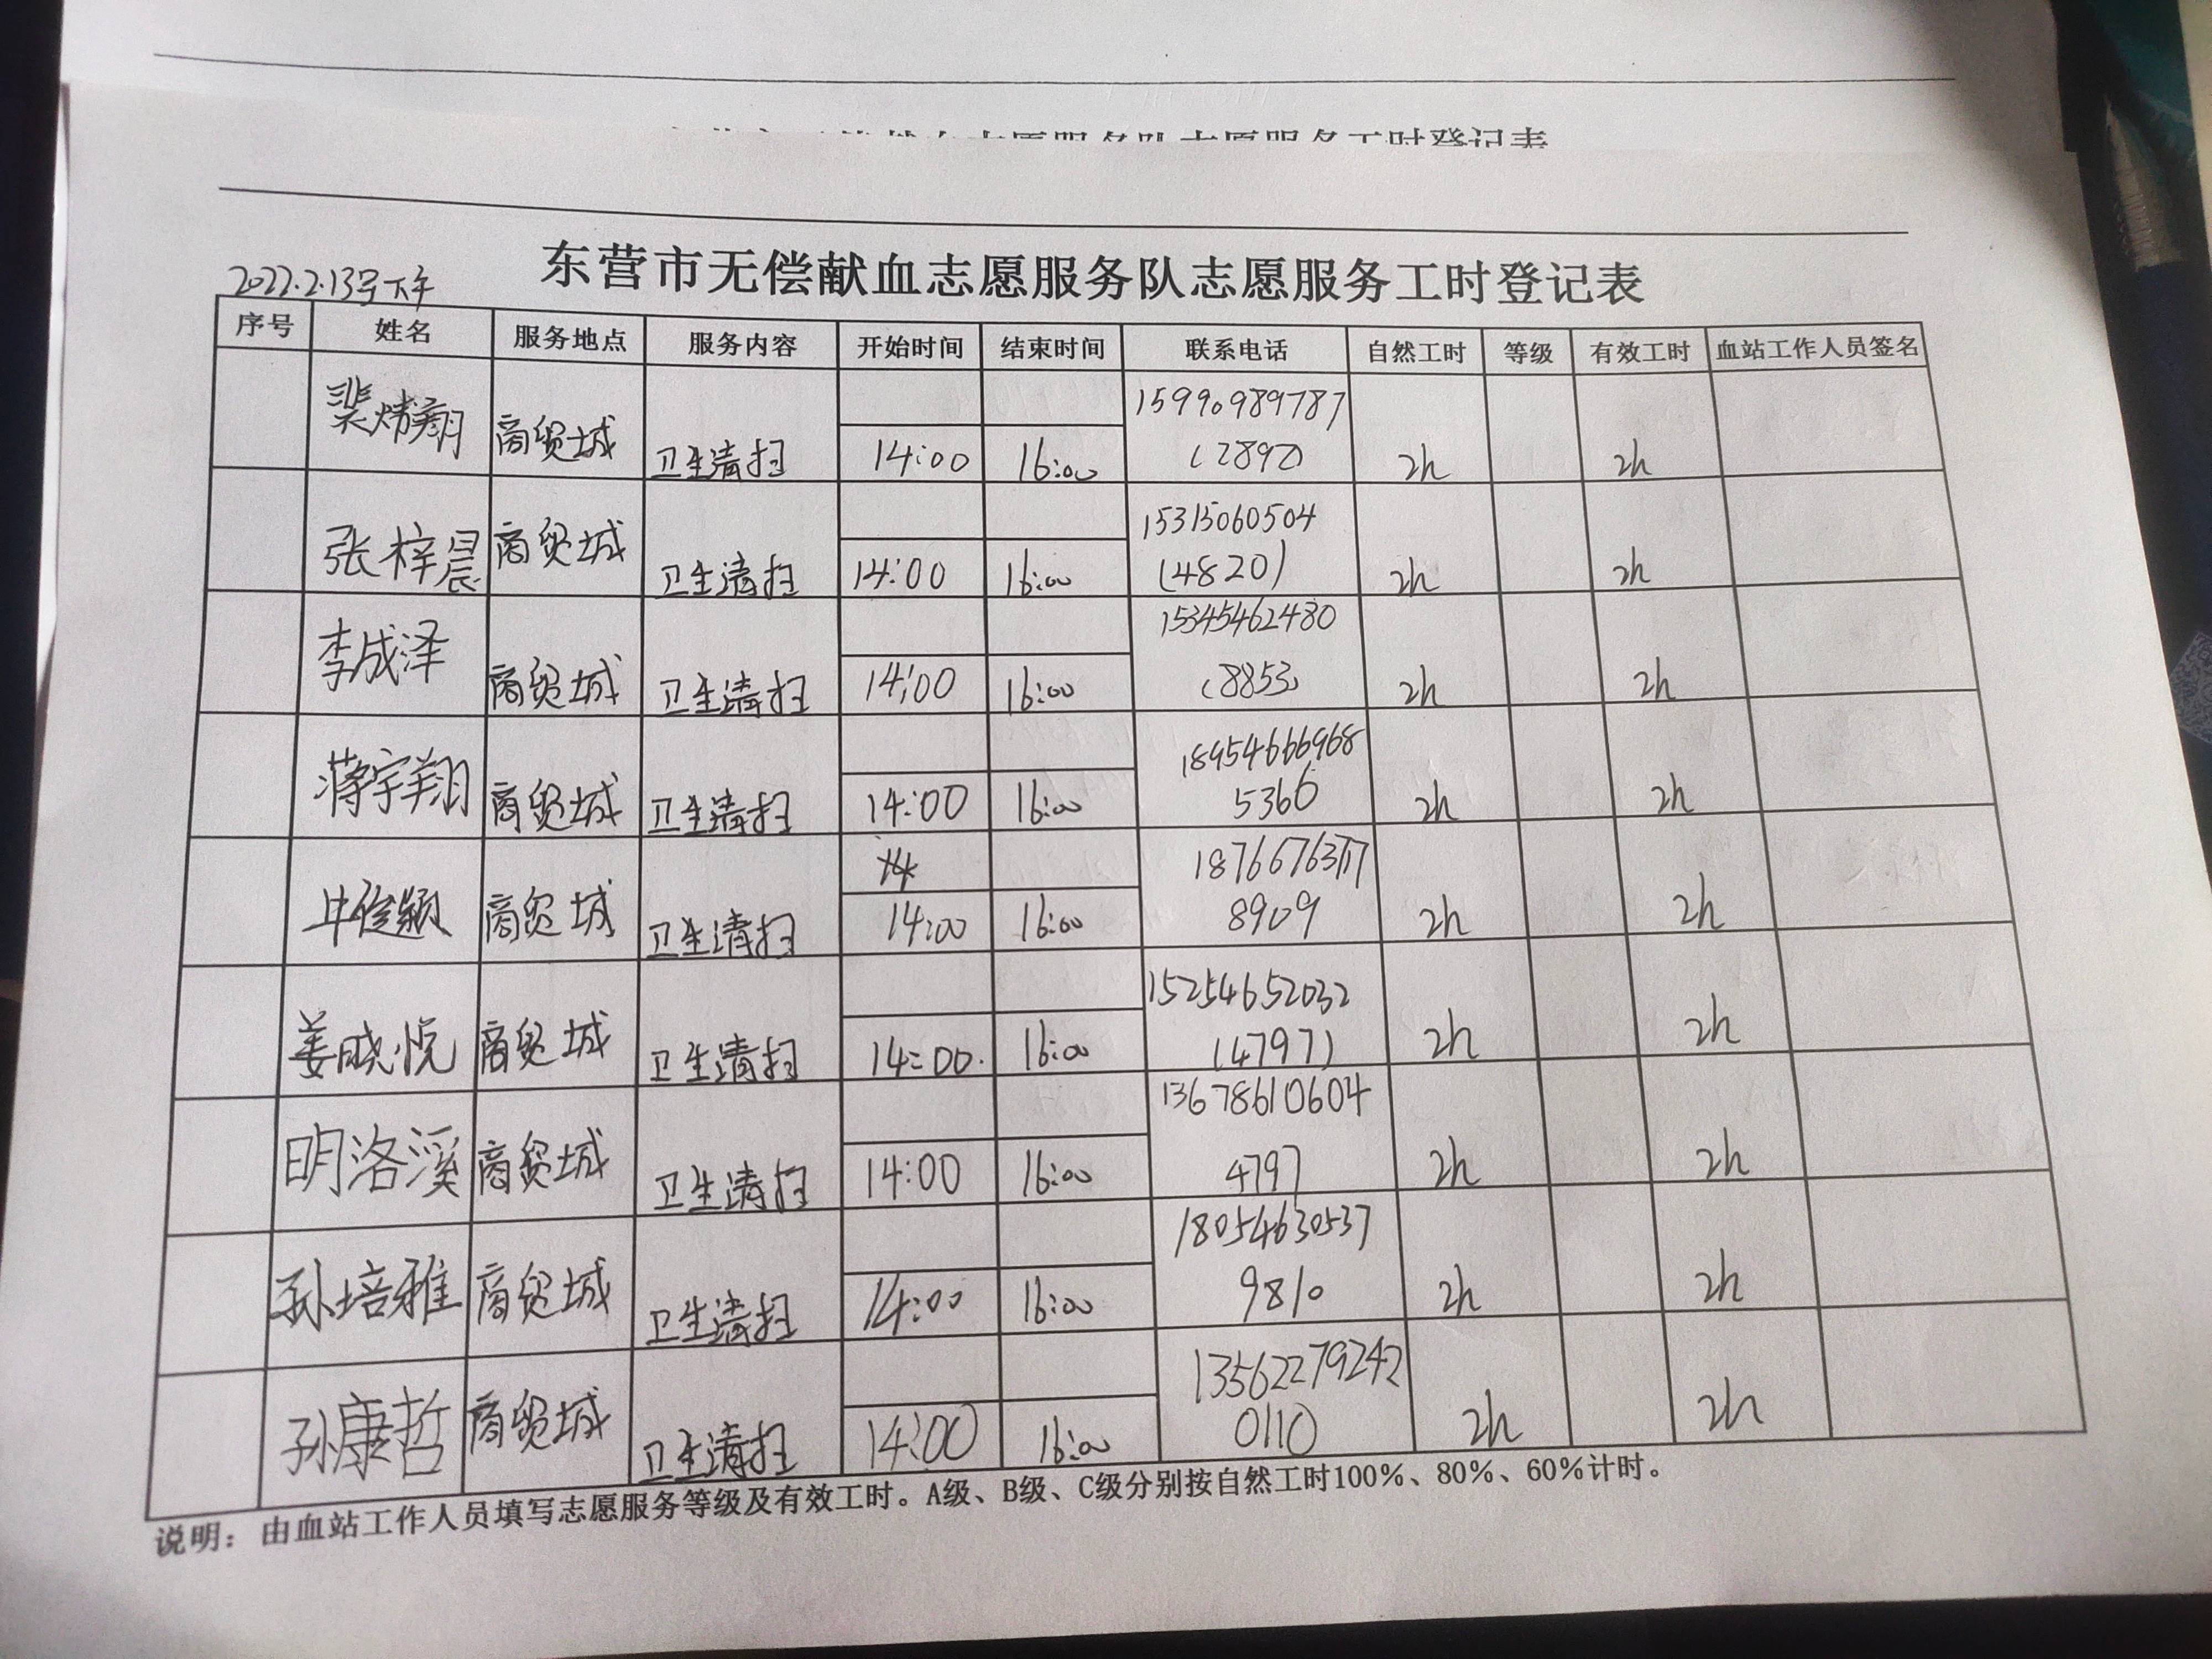 2022.2.13号下午
东营市无偿献血志愿服务队志愿服务工时登记表
序号 姓名 服务地点 服务内容 开始时间 结束时间 联系电话 自然工时 等级 有效工时 血站工作人员签名
裴炜翔 商贸城 卫生清扫 14:00 16:00 15990989787 2h 2h
(2892)
张梓晨 商贸城 卫生清扫 14:00 16:00 15315060504 2h 2h
(4820)
李成泽 商贸城 卫生清扫 14:00 16:00 15345462480 2h 2h
(8853)
蒋宇翔 商贸城 卫生清扫 14:00 16:00 18954666968 2h 2h
5366
商贸城 卫生清扫 14:00 16:00 2h 2h
8909
姜晓悦 商贸城 卫生清扫 14:00 16:00 15254652032 2h 2h
(4797)
明洛溪 商贸城 卫生清扫 14:00 16:00 13678610604 2h 2h
4797
孙培雅 商贸城 卫生清扫 14:00 16:00 18054630537 2h 2h
9810
孙康哲 商贸城 卫生清扫 14:00 16:00 13562279242 2h 2h
0110
说明：由血站工作人员填写志愿服务等级及有效工时。A级、B级、C级分别按自然工时100%、80%、60%计时。